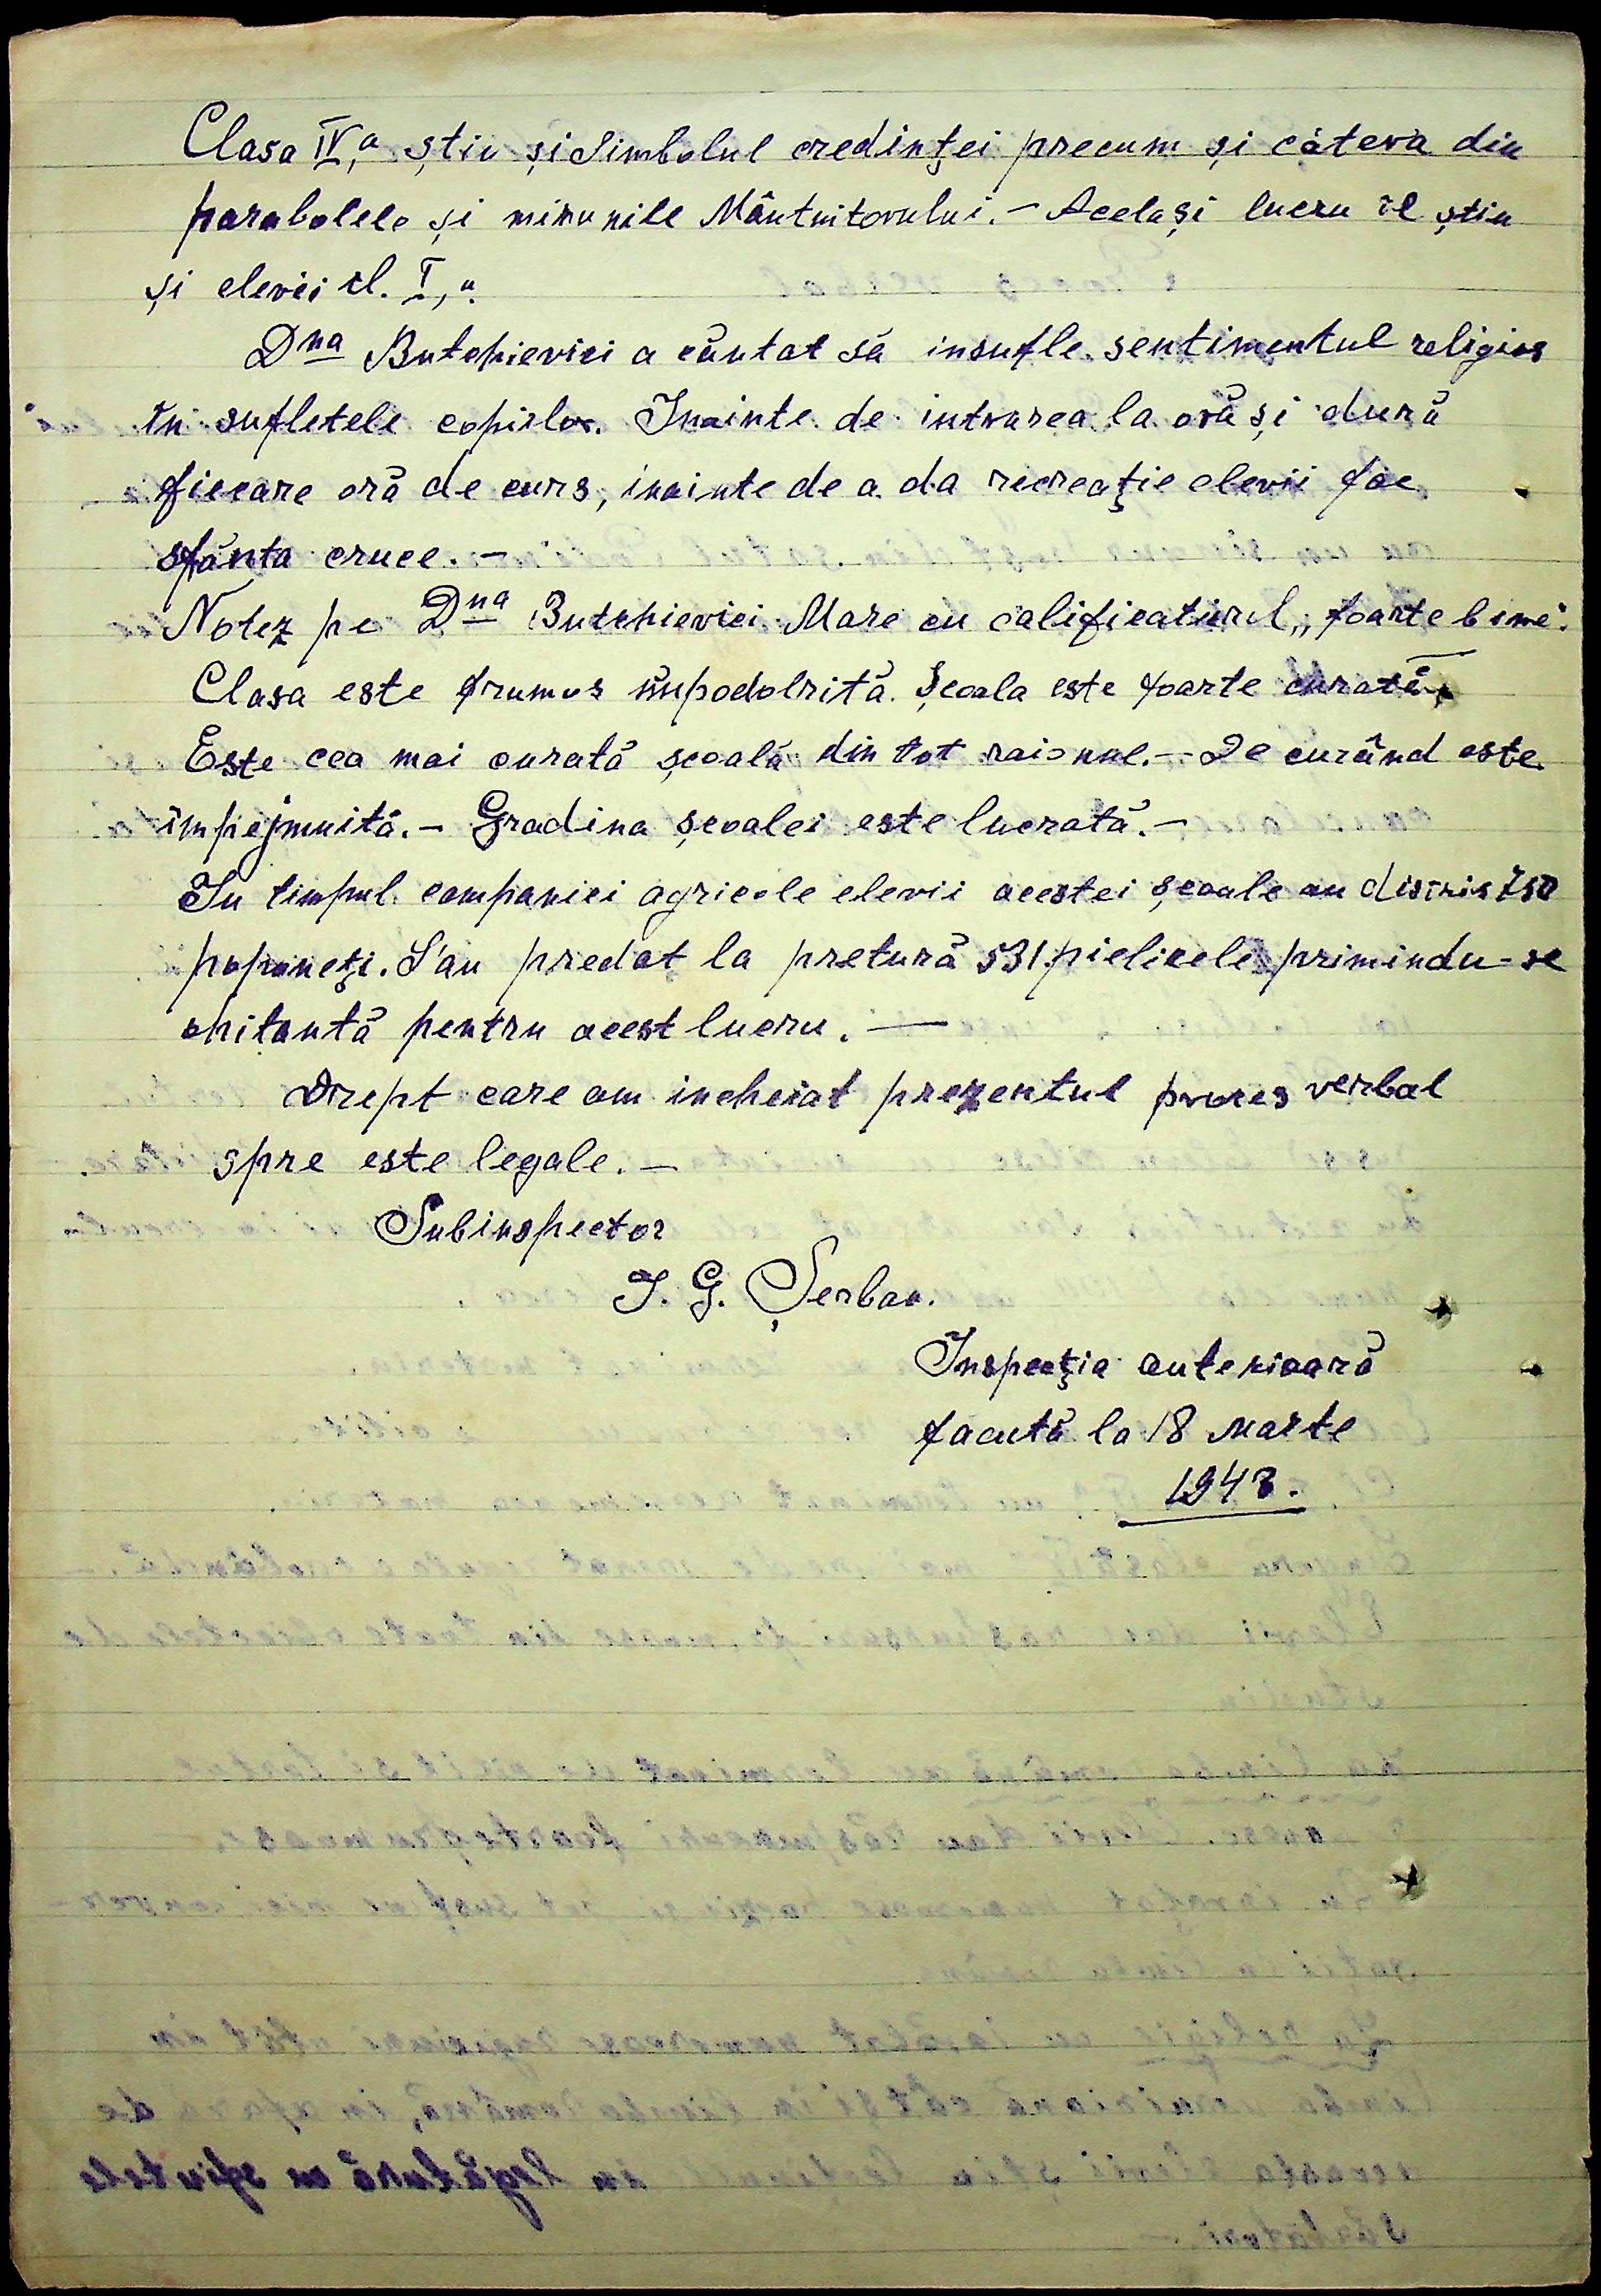 Clasa IV,a știu și Simbolul credinței precum și câteva din
parabolele și minunile Mântuitorului. - Același lucru îl știu
și elevii cl. I,a.
Dna Butchievici a căutat să insufle sentimentul religios
în sufletele copiilor. Inainte de intrarea la oră și dură
fiecare oră de curs, inainte de a da recreație elevii fac
sfânta cruce. -
Notez pe Dna Butchievici Mare cu calificativul „foarte bine".
Clasa este frumos împodobită. Școala este foarte curată.
Este cea mai curată școală din tot raionul. - De curând este
împrejmuită. - Gradina școalei este lucrată. -
In timpul campaniei agricole elevii acestei școale au distris 750
popâneți. S'au predat la pretură 531 pielicele primindu-se
chitantă pentru acest lucru. -
Drept care am incheiat prezentul proces verbal
spre este legale. -
Subinspector
I. G. Șerban.
Inspecția anterioară
facută la 18 Marte
1943.